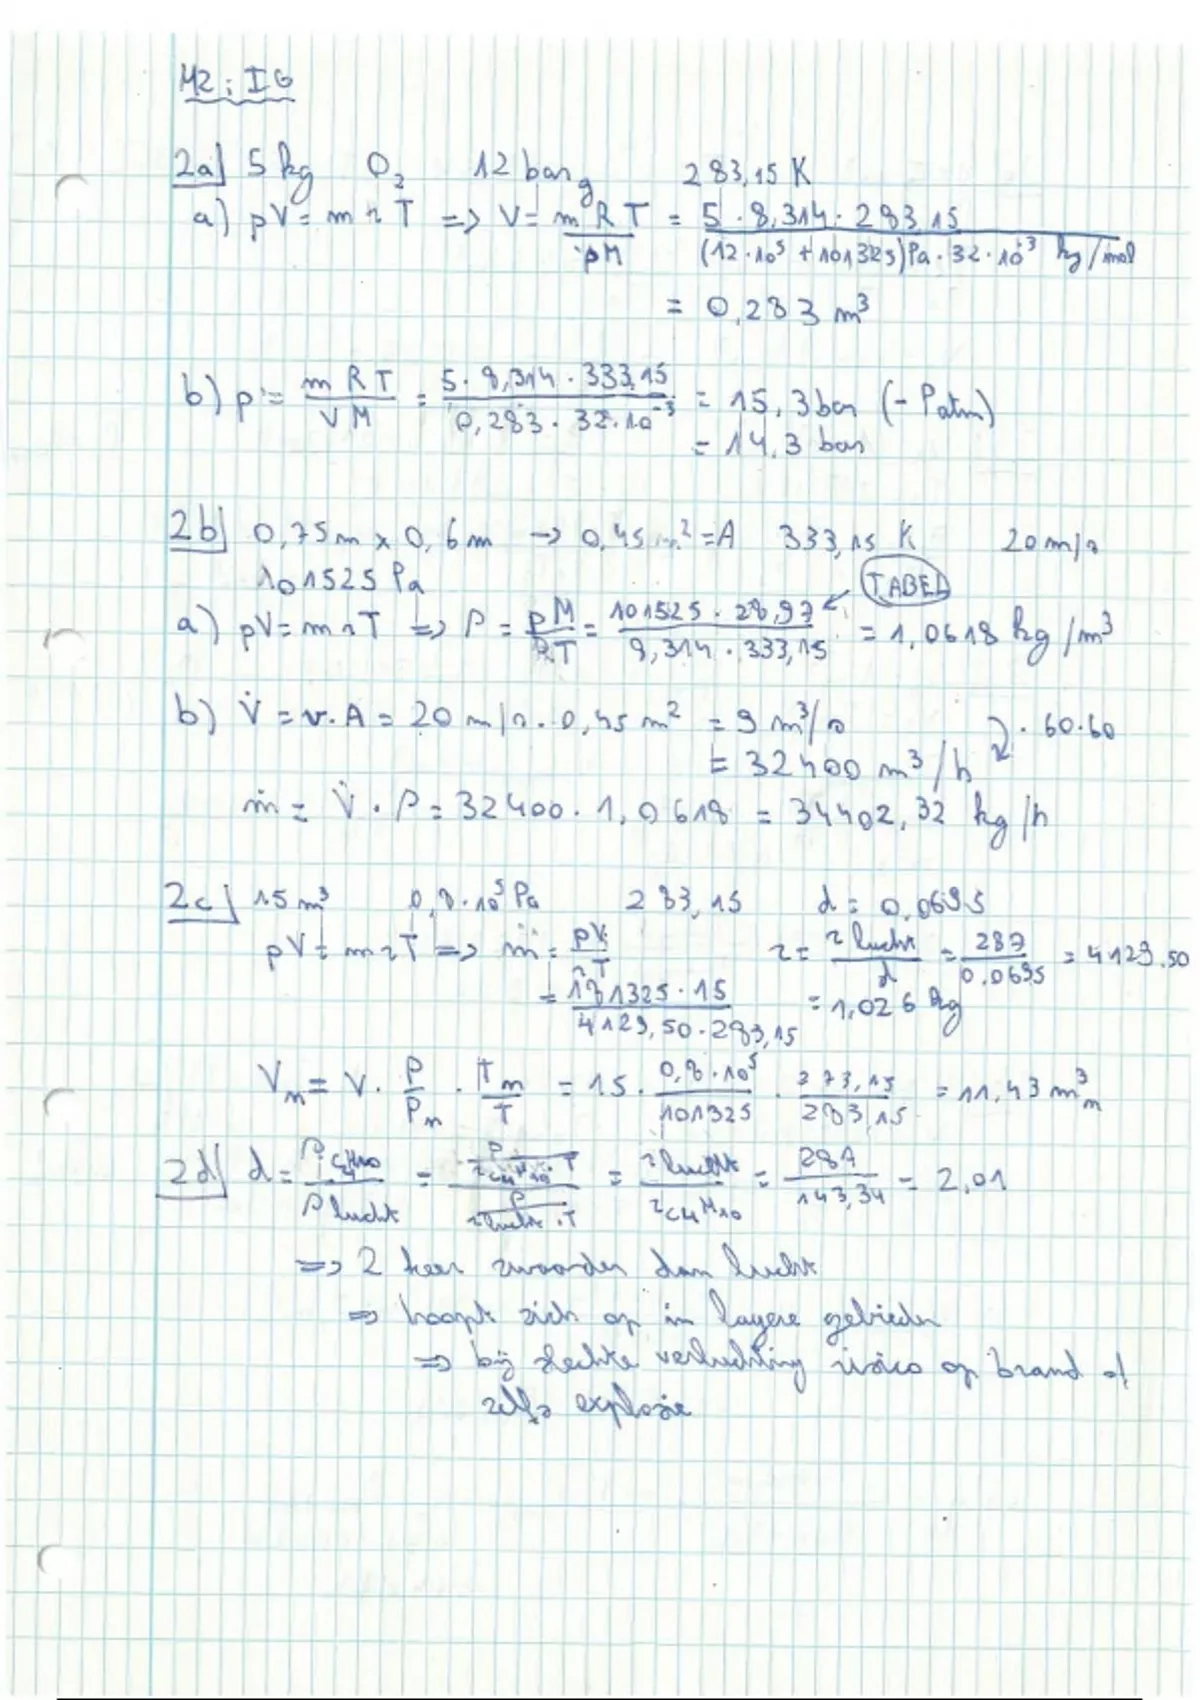 M2: IG
2a] 5 kg O₂ 12 bar_g 283,15 K
a) pV = m r T => V = m R T / pM = 5 · 8,314 · 283,15 / (12·10⁵ + 101325)Pa · 32·10⁻³ kg/mol
= 0,283 m³
b) p = m R T / V M = 5 · 8,314 · 333,15 / 0,283 · 32·10⁻³ = 15,3 bar (- Patm)
= 14,3 bar
2b] 0,75m x 0,6m -> 0,45 m² = A 333,15 K 20 m/s
101525 Pa
TABEL
a) pV = m r T => ρ = pM / RT = 101525 · 28,97 / 8,314 · 333,15 = 1,0618 kg/m³
b) V̇ = v·A = 20 m/s · 0,45 m² = 9 m³/s
= 32400 m³/h · 60·60
ṁ = V̇ · ρ = 32400 · 1,0618 = 34402,32 kg/h
2c] 15 m³ 0,8·10⁵ Pa 283,15 d = 0,0695
pV = m r T => m = pV / rT r = r lucht / d = 287 / 0,0695 = 4129,50
= 131325 · 15 / 4129,50 · 283,15 = 1,026 kg
Vn = V · P/Pn · Tn/T = 15 · 0,8·10⁵ / 101325 · 273,15 / 283,15 = 11,43 m³n
2d] d = ρ C₄H₁₀ / ρ lucht = p / r C₄H₁₀ · T / p / r lucht · T = r lucht / r C₄H₁₀ = 287 / 143,34 = 2,01
=> 2 keer zwaarder dan lucht
=> hoopt zich op in lagere gebieden
=> bij slechte verluchting risico op brand of
zelfs explosie